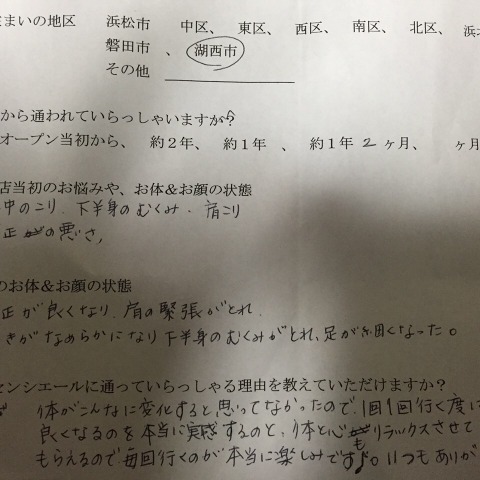 まいの地区 浜松市 中区、 東区、 西区、 南区、 北区、 浜北
磐田市 、 湖西市
その他
から通われていらっしゃいますが?
オープン当初から、 約2年、 約1年 、 約1年2ヶ月、 ヶ月
店当初のお悩みや、お体&お顔の状態
中のこり、下半身のむくみ・肩こり
正 の悪さ,
のお体&お顔の状態
正が良くなり、肩の緊張がとれ、
きがなめらかになり下半身のむくみがとれ、足が細くなった。
センシエールに通っていらっしゃる理由を教えていただけますか?
体がこんなに変化すると思ってなかったので、1回1回行く度に
良くなるのを本当に実感するのと、体と心もリラックスさせて
もらえるので毎回行くのが本当に楽しみです♪。いつもありが